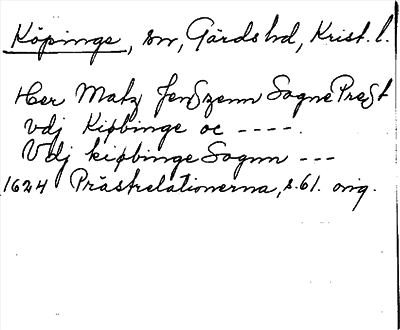 Köpinge, sn, Gärds hd, Krist. l.
Her Matz Jenszenn Sogne Prest
vdj Kiøbinge oc ----.
Vdj kiøbinge Sognn ---
1624 Prästrelationerna, s. 61. orig.